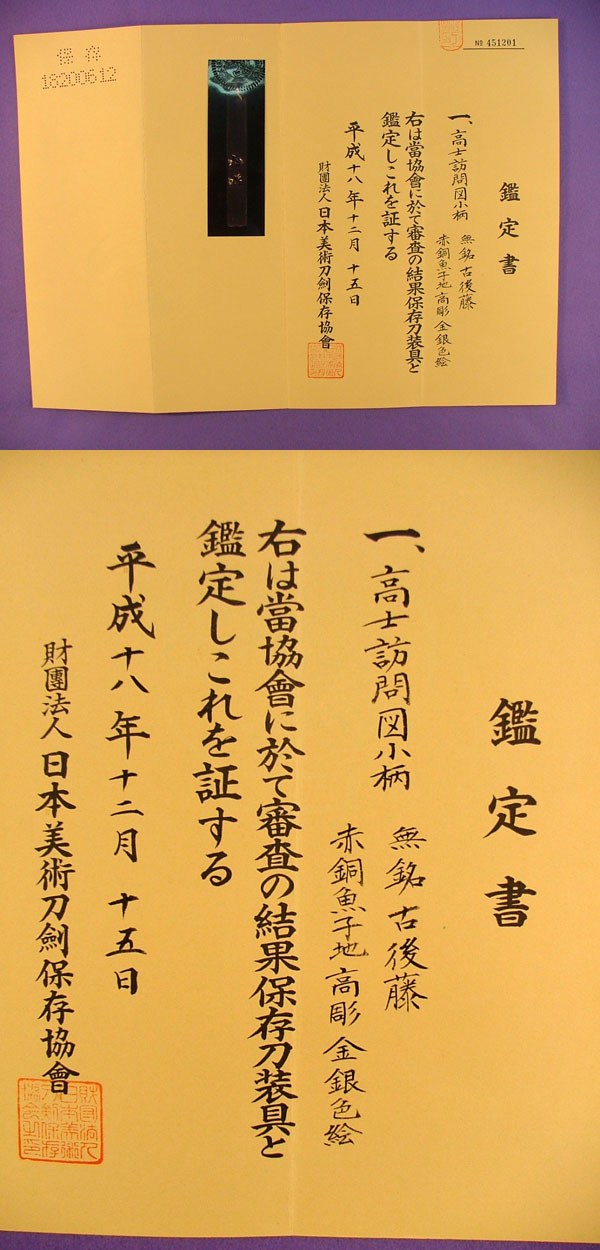 保存
18200612
№ 451201
鑑定書
一、高士訪問図小柄
無銘 古後藤
赤銅魚子地高彫 金銀色絵
右は當協會に於て審査の結果保存刀装具と
鑑定しこれを証する
平成十八年十二月十五日
財團法人日本美術刀劍保存協會
鑑定書
一、高士訪問図小柄
無銘 古後藤
赤銅魚子地高彫 金銀色絵
右は當協會に於て審査の結果保存刀装具と
鑑定しこれを証する
平成十八年十二月十五日
財團法人日本美術刀劍保存協會